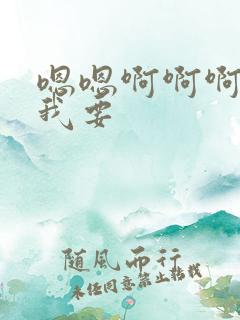 嗯嗯啊啊啊
我要
随風而行
未经同意禁止转载